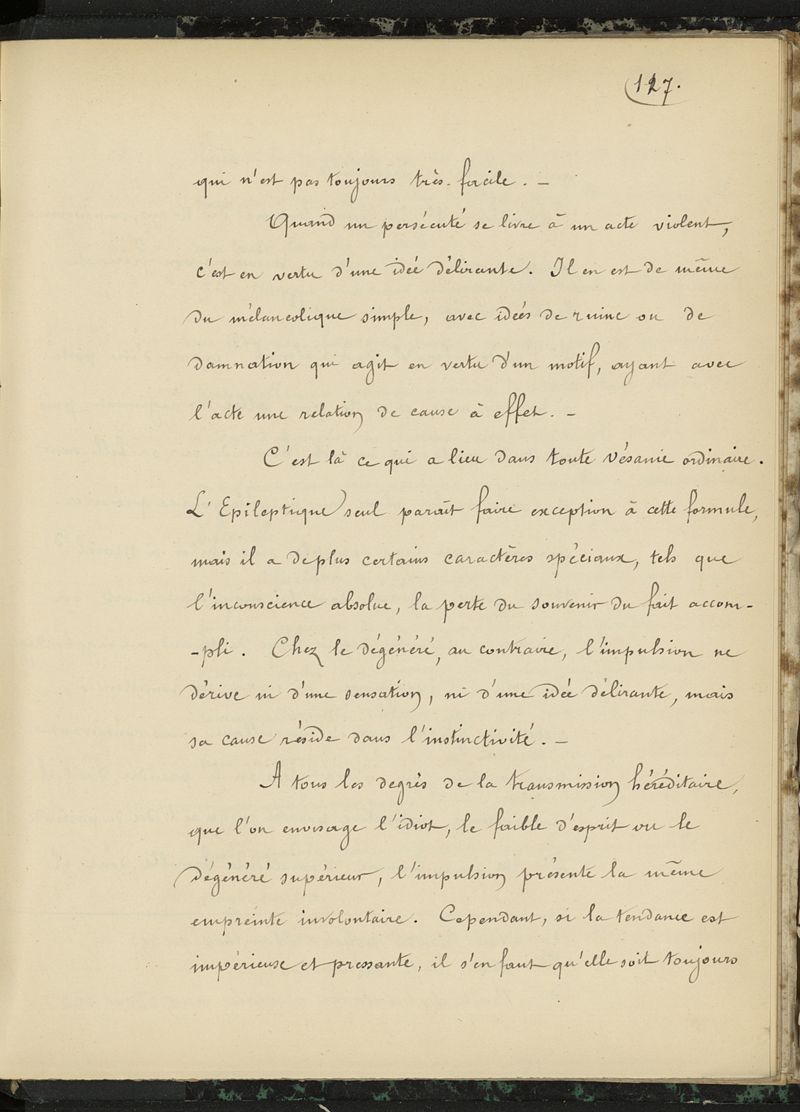 127.
qui n'est pas toujours très-facile. —
Quand un persécuté se livre à un acte violent,
c'est en vertu d'une idée délirante. Il en est de même
du mélancolique simple, avec idées de ruine ou de
damnation qui agit en vertu d'un motif, ayant avec
l'acte une relation de cause à effet. —
C'est là ce qui a lieu dans toute vésanie ordinaire.
L'Epileptique seul paraît faire exception à cette formule,
mais il a de plus certains caractères spéciaux, tels que
l'inconscience absolue, la perte du souvenir du fait accom-
-pli. Chez le dégénéré, au contraire, l'impulsion ne
dérive ni d'une sensation, ni d'une idée délirante, mais
sa cause réside dans l'instinctivité. —
A tous les degrés de la transmission héréditaire,
que l'on envisage l'idiot, le faible d'esprit ou le
dégénéré supérieur, l'impulsion présente la même
empreinte involontaire. Cependant, si la tendance est
impérieuse et pressante, il s'en faut qu'elle soit toujours